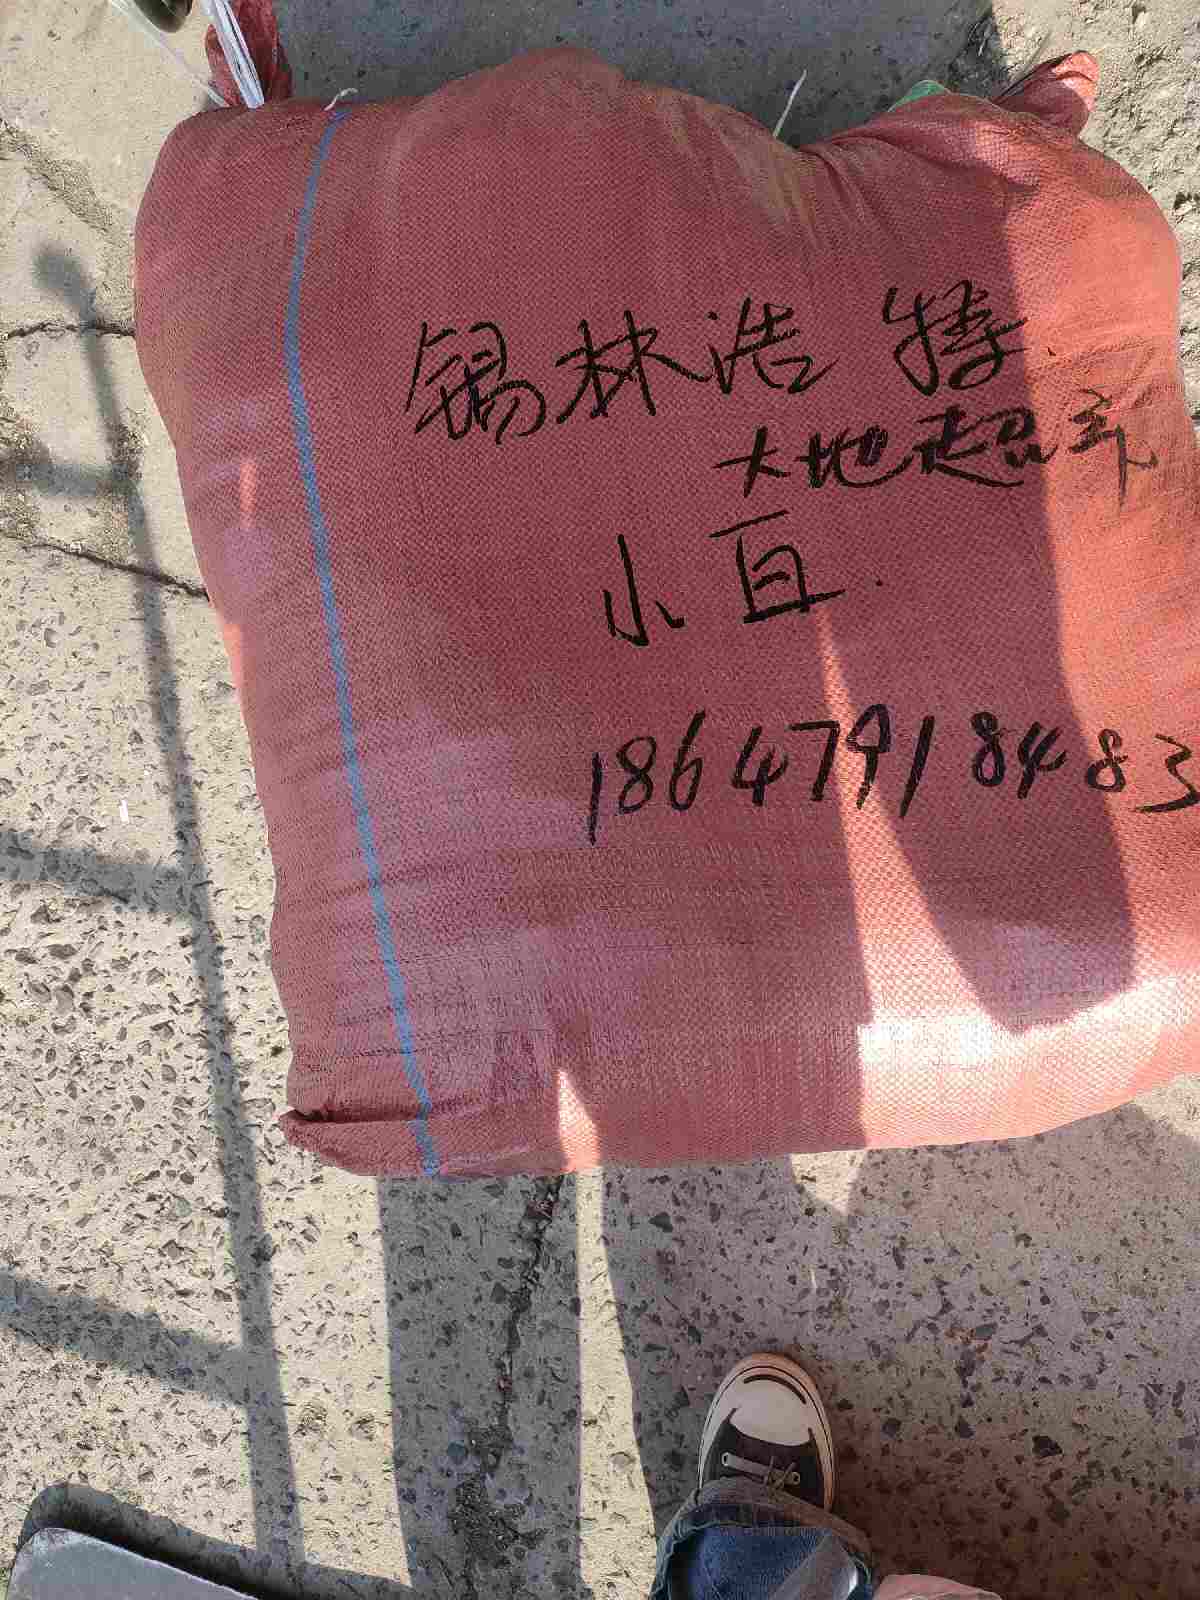 锡林浩特
大地超市
小亘
18647918483